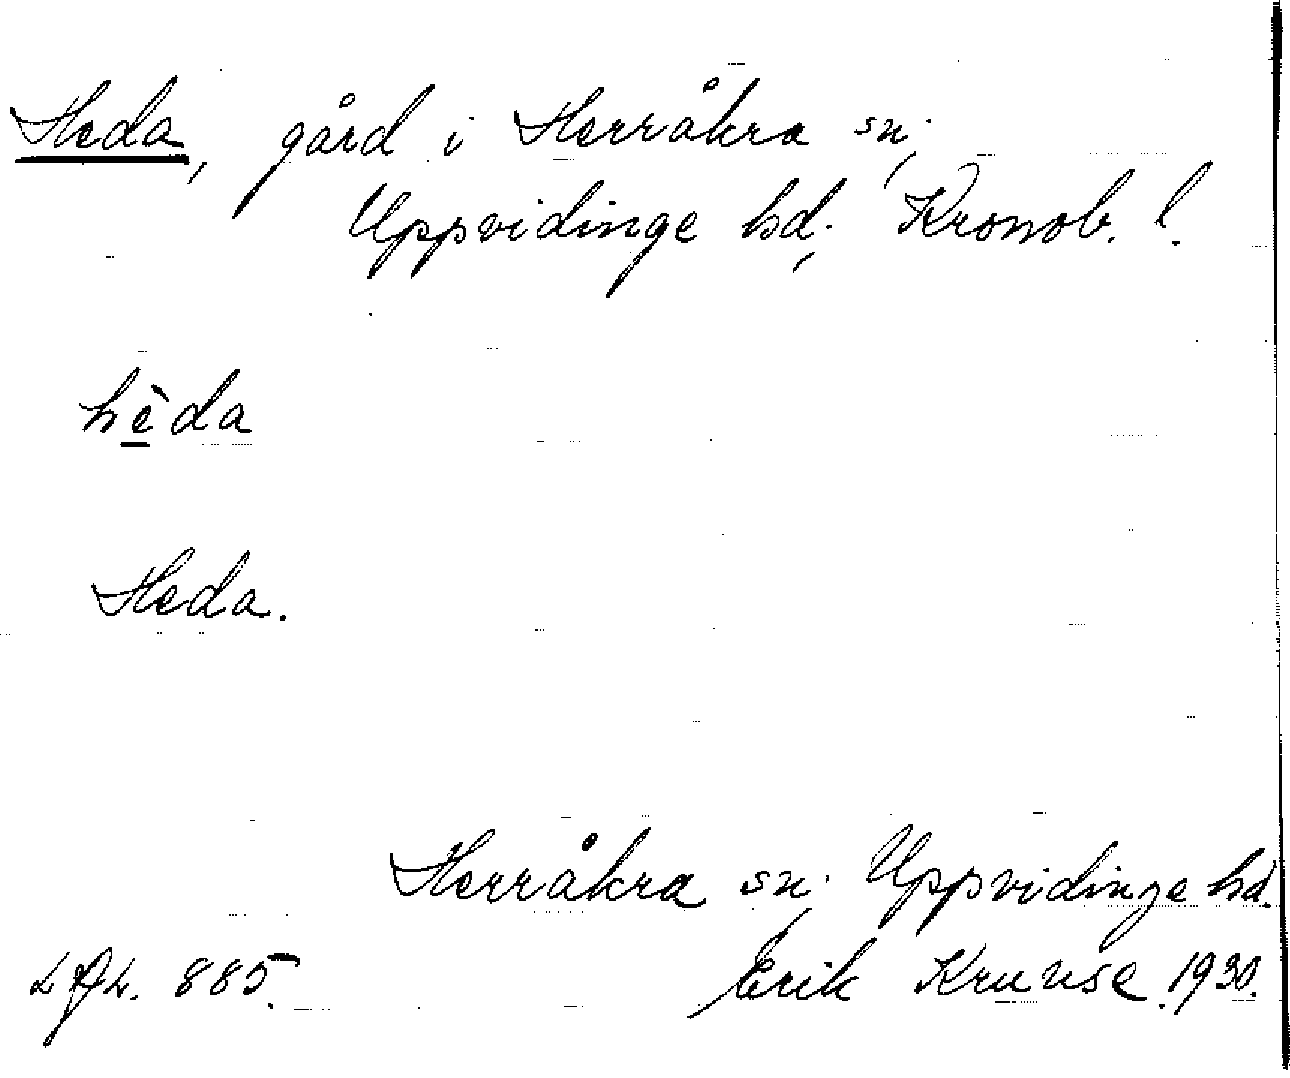 Heda, gård i Herråkra sn.,
Uppvidinge hd., Kronob. l.
hèda
Heda.
Herråkra sn., Uppvidinge hd.
885. Erik Kruuse. 1930.